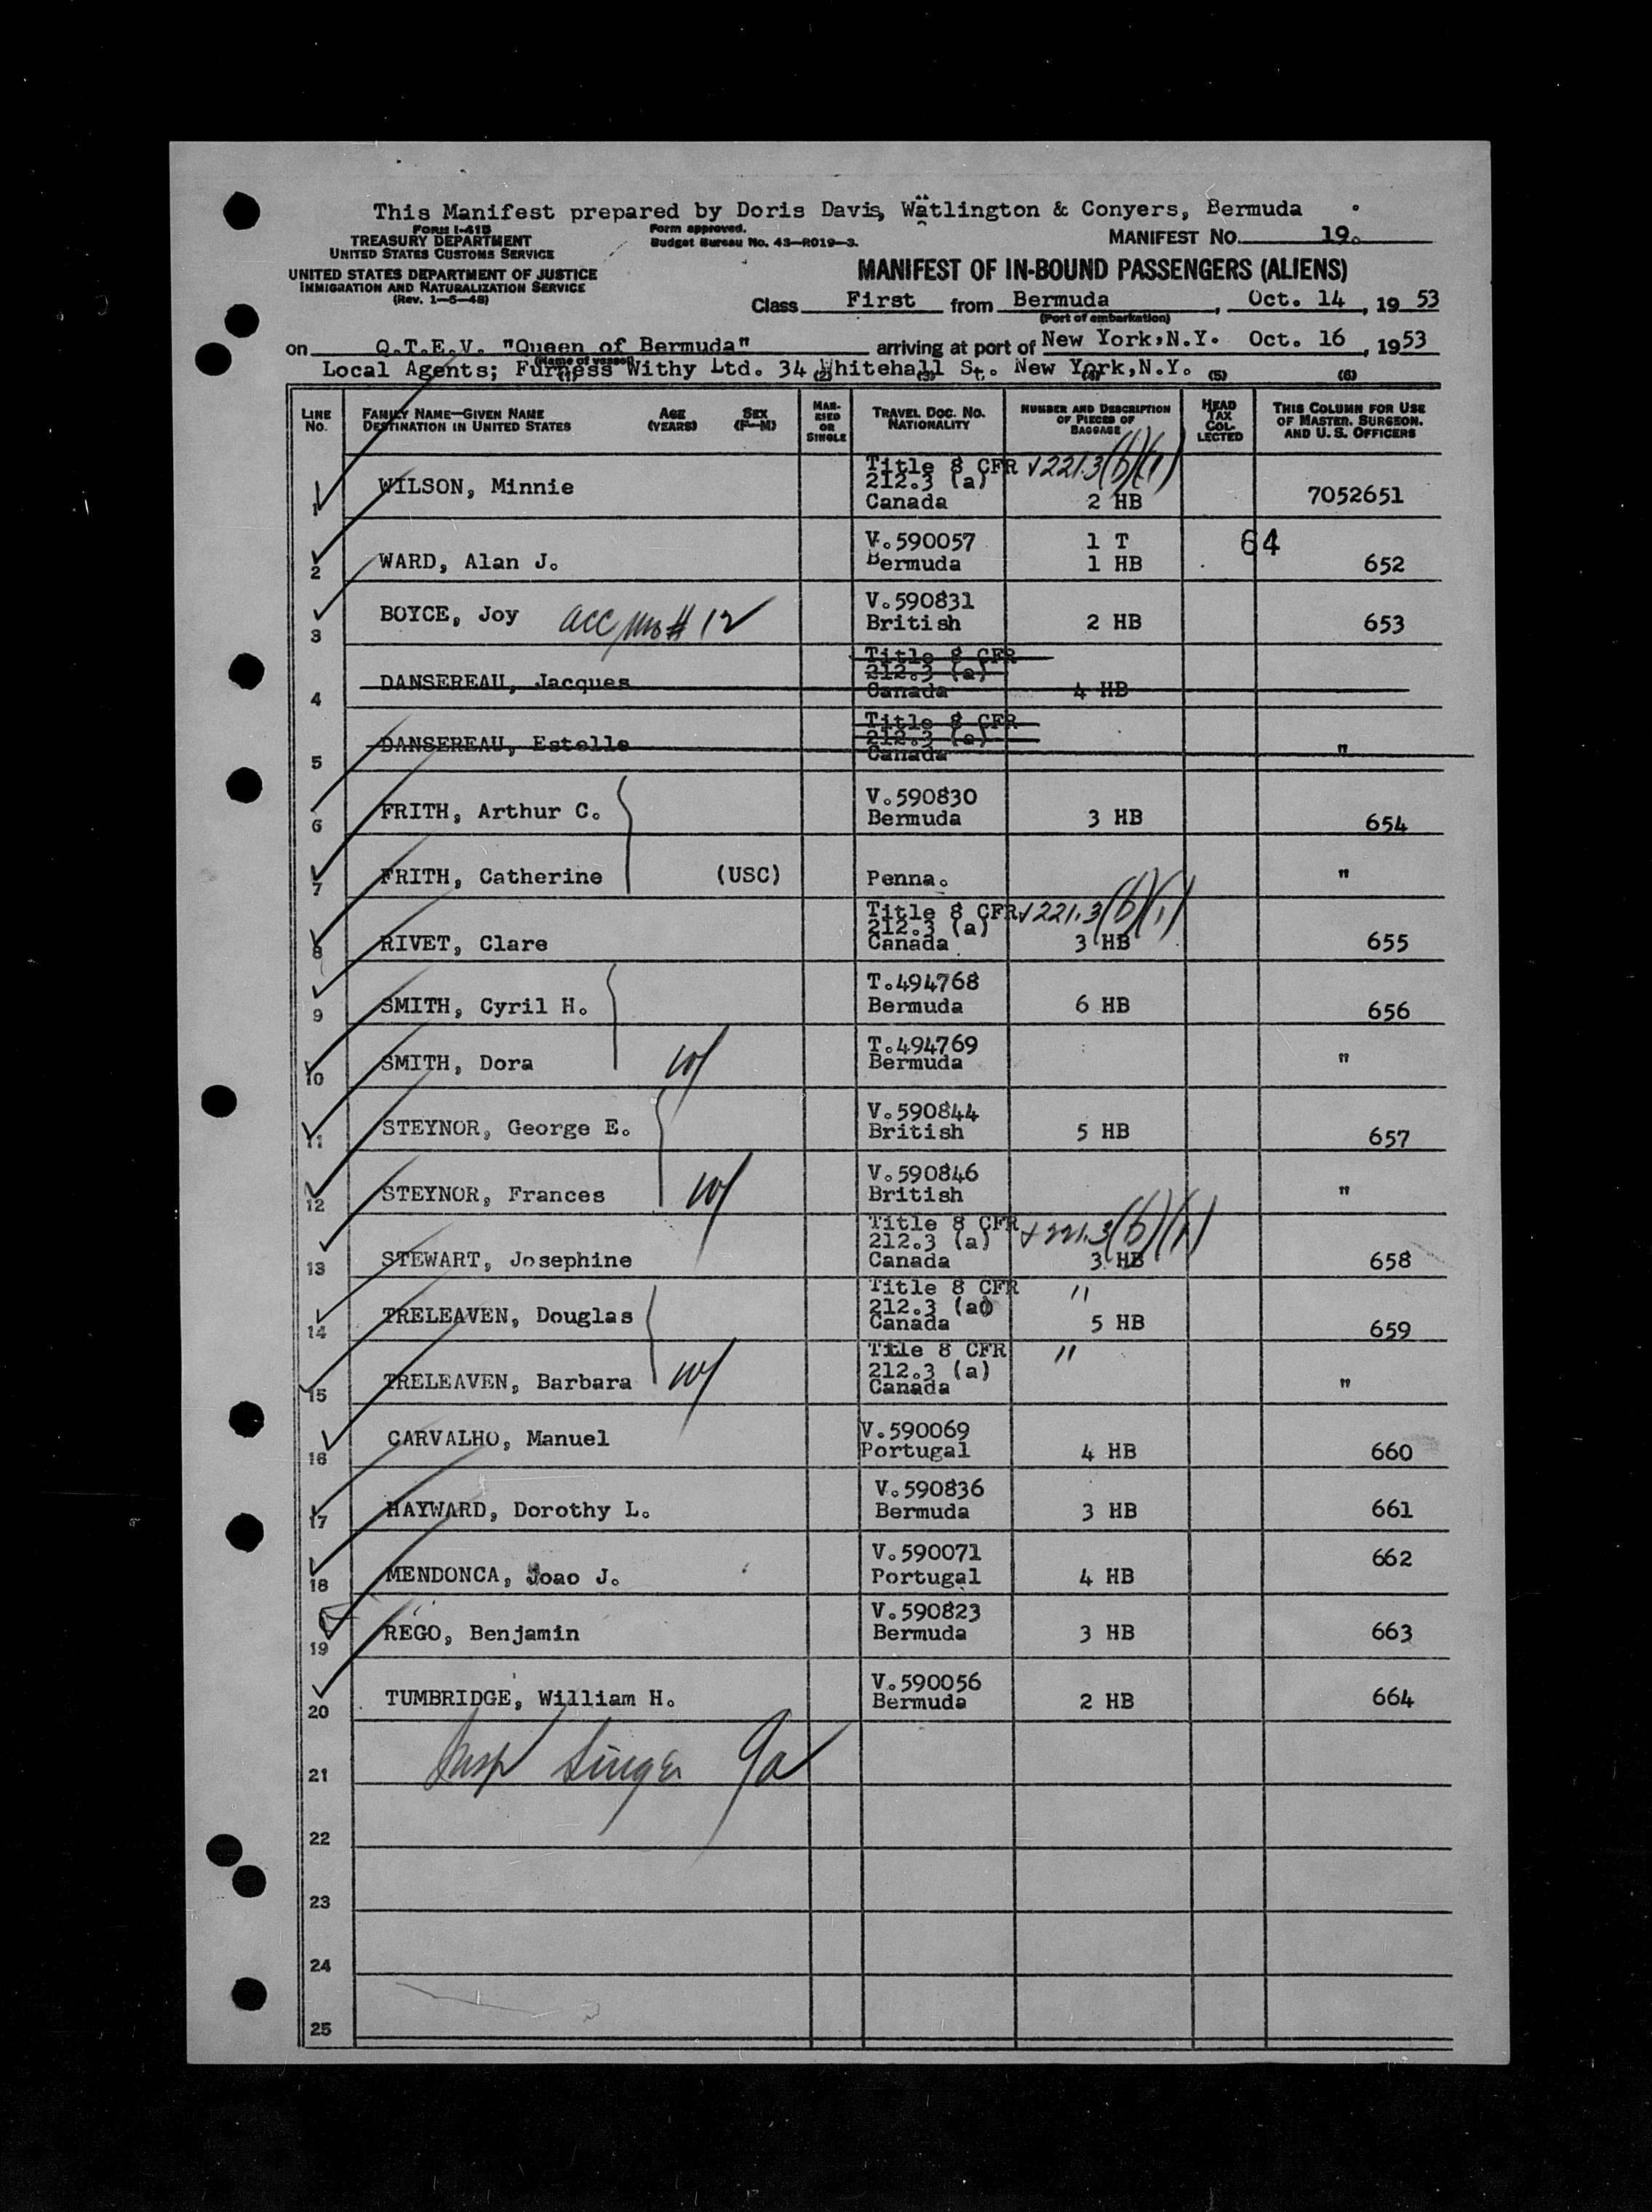 This Manifest prepared by Doris Davis, Watlington & Conyers, Bermuda
FORM I-415
TREASURY DEPARTMENT
UNITED STATES CUSTOMS SERVICE
Form approved.
Budget Bureau No. 43-R019-3.
MANIFEST NO. 19.
UNITED STATES DEPARTMENT OF JUSTICE
IMMIGRATION AND NATURALIZATION SERVICE
(Rev. 1-5-48)
MANIFEST OF IN-BOUND PASSENGERS (ALIENS)
Class First from Bermuda, Oct. 14, 1953
(Port of embarkation)
on Q.T.E.V. "Queen of Bermuda" arriving at port of New York, N.Y. Oct. 16, 1953
(Name of vessel)
Local Agents; Furness Withy Ltd. 34 Whitehall St. New York, N.Y.
(1) (2) (3) (4) (5) (6)
LINE No. FAMILY NAME—GIVEN NAME DESTINATION IN UNITED STATES AGE (YEARS) SEX (F-M) MARRIED OR SINGLE TRAVEL DOC. NO. NATIONALITY NUMBER AND DESCRIPTION OF PIECES OF BAGGAGE HEAD TAX COLLECTED THIS COLUMN FOR USE OF MASTER, SURGEON, AND U. S. OFFICERS
1 WILSON, Minnie Title 8 CFR 212.3 (a) Canada 221.3(b)(1) 2 HB 7052651
2 WARD, Alan J. V.590057 Bermuda 1 T 1 HB 64 652
3 BOYCE, Joy # 12 V.590831 British 2 HB 653
4 DANSEREAU, Jacques Title 8 CFR 212.3 (a) Canada 4 HB
5 DANSEREAU, Estelle Title 8 CFR 212.3 (a) Canada "
6 FRITH, Arthur C. V.590830 Bermuda 3 HB 654
7 FRITH, Catherine (USC) Penna. "
8 RIVET, Clare Title 8 CFR 212.3 (a) Canada 221.3(b)(1) 3 HB 655
9 SMITH, Cyril H. T.494768 Bermuda 6 HB 656
10 SMITH, Dora W/ T.494769 Bermuda "
11 STEYNOR, George E. V.590844 British 5 HB 657
12 STEYNOR, Frances W/ V.590846 British "
13 STEWART, Josephine Title 8 CFR 212.3 (a) Canada 221.3(b)(1) 3 HB 658
14 TRELEAVEN, Douglas Title 8 CFR 212.3 (a) Canada " 5 HB 659
15 TRELEAVEN, Barbara W/ Title 8 CFR 212.3 (a) Canada " "
16 CARVALHO, Manuel V.590069 Portugal 4 HB 660
17 HAYWARD, Dorothy L. V.590836 Bermuda 3 HB 661
18 MENDONCA, Joao J. V.590071 Portugal 4 HB 662
19 REGO, Benjamin V.590823 Bermuda 3 HB 663
20 TUMBRIDGE, William H. V.590056 Bermuda 2 HB 664
21 Insp Singer
22
23
24
25